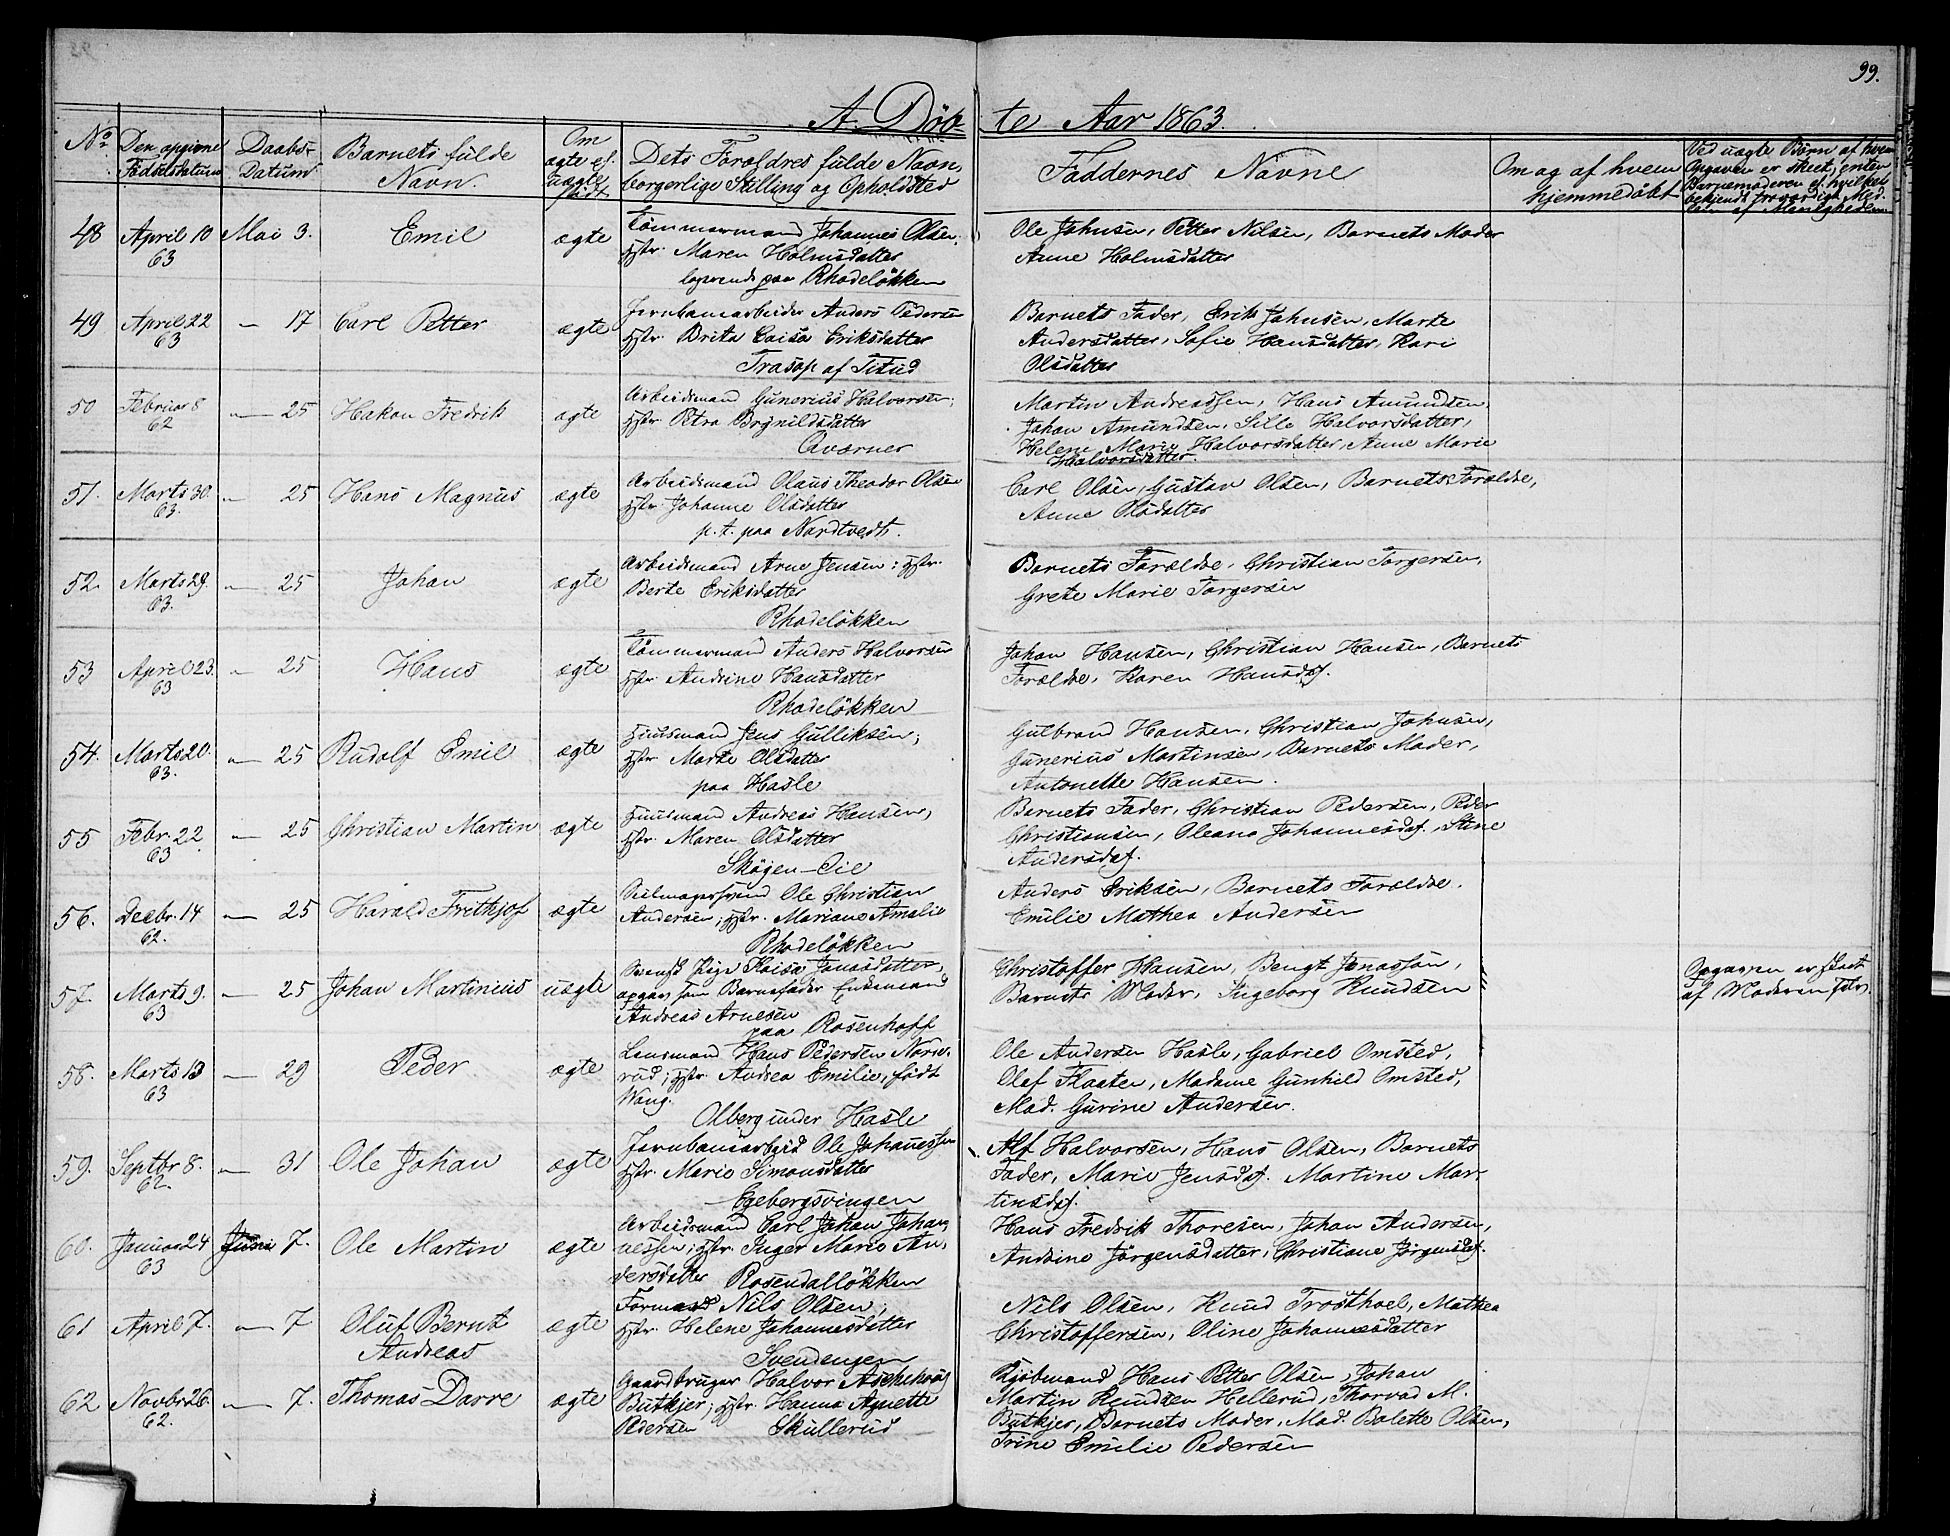 99.
A. Döbte Aar 1863.
No. Den opgivne Fødselsdatum Daabs-Datum Barnets fulde Navn. Om ægte el. uægte født Dets Forældres fulde Navn, borgerlige Stilling og Opholdsted Faddernes Navne Om og af hvem hjemmedøbt Ved uægte Børn af hvem Opgaven er skeet, enten Barnemoderen el. hvilket bekjendt troværdigt Med- lem af Menigheden
48 April 10 63 Mai 3. Emil ægte
Tömmermand Johannes Olsen,
Hstr. Maren Holmsdatter
logerende paa Rhodeløkken
Ole Johnsen, Petter Nilsen, Barnets Moder
Anne Holmsdatter
49 April 22 63 — 17 Carl Petter ægte
Jernbanearbeider Anders Pedersen
Hstr. Brita Caisa Eriksdatter
Trasop af
Barnets Fader, Erik Johnsen, Marte
Andersdatter, Sofie Hansdatter, Kari
Olsdatter
50 Februar 8 62 — 25 Hakon Fredrik ægte
Arbeidsmand Gunerius Halvorsen;
Hstr. Petra Brynildsdatter
Qværner
Martin Andreassen, Hans Amundsen,
Johan Amundsen, Sille Halvorsdatter,
Helene Marie Halvorsdatter, Anne Marie
Halvorsdatter.
51. Marts 30. 63. — 25 Hans Magnus ægte
Arbeidsmand Olaus Theodor Olsen
Hstr. Johanne Olsdatter
p. t. paa Nordtvedt.
Carl Olsen, Gustav Olsen, Barnets Forældre,
Anne Olsdatter
52. Marts 29. 63. — 25 Johan ægte
Arbeidsmand Arne Jensen; Hstr.
Berte Eriksdatter
Rhodeløkken
Barnets Forældre, Christian Torgersen,
Grete Marie Torgersen
53 April 23. 63 — 25 Hans ægte
Tömmermand Anders Halvorsen
Hstr. Andrine Hansdatter
Rhodeløkken
Johan Hansen, Christian Hansen, Barnets
Forældre, Karen Hansdat.
54. Marts 20 63. — 25 Rudolf Emil ægte
Huusmand Jens Gulliksen;
Hstr. Marte Olsdatter
paa Hasle
Gulbrand Hansen, Christian Johnsen,
Gunerius Martinsen, Barnets Moder,
Antonette Hansen.
55 Febr. 22 63 — 25 Christian Martin ægte
Huusmand Andreas Hansen,
Hstr. Maren Olsdatter
Skögen-Eie
Barnets Fader, Christian Pedersen, Peder
Christiansen, Oleana Johannesdat. Stine
Andersdat.
56. Decbr. 14 62. — 25 Harald Frithjof ægte
Seilmagersvend Ole Christian
Andersen; Hstr. Mariane Amalie
Rhodeløkken
Anders Eriksen, Barnets Forældre.
Emilie Mathea Andersen
57. Marts 9. 63 — 25 Johan Martinius uægte
Svensk Pige Kaisa Jonasdatter,
opgav som Barnefader Enkemand
Andreas Arnesen
paa Rosenhoff
Christoffer Hansen, Bengt Jonassön,
Barnets Moder, Ingeborg Knudsen
Opgaven er skeet
af Moderen selv.
58. Marts 13 63 — 29 Peder ægte
Lensmand Hans Pedersen Nore-
rud; Hstr. Andrea Emilie, født
Wang.
Olberg under Hasle
Ole Andersen Hasle, Gabriel Omsted,
Olef Flaaten, Madame Gunhild Omsted,
Mad. Gurine Andersen.
59. Septbr 8. 62. — 31 Ole Johan ægte
Jernbanearbeid Ole Johannessen
Hstr. Marie Simonsdatter
Egebergsvingen
Alf Halvorsen, Hans Olsen, Barnets
Fader, Marie Jensdat. Martine Mar-
tinsdat.
60. Januar 24 63 Juni 7. Ole Martin ægte
Arbeidsmand Carl Johan Johan-
nessen; Hstr. Inger Marie An-
dersdatter Rosendalløkken
Hans Fredrik Thoresen, Johan Andersen,
Andrine Jörgensdatter, Christiane Jörgensdat.
61 April 7. — 7 Oluf Bernt Andreas ægte
Formand Nils Olsen;
Hstr. Helene Johannesdatter
Svendengen
Nils Olsen, Knud Trosthoel, Mathea
Christoffersen, Oline Johannesdatter
62 Novbr 26. 62. — 7. Thomas Darre ægte
Gaardbruger Halvor Aschehoug
Butkjer; Hstr. Hanna Agnette
Pedersen Skullerud
Kjöbmand Hans Petter Olsen, Johan
Martin Knudsen Hellerud, Thorvad M.
Butkjer, Barnets Moder, Mad. Bolette Olsen,
Trine Emilie Pedersen